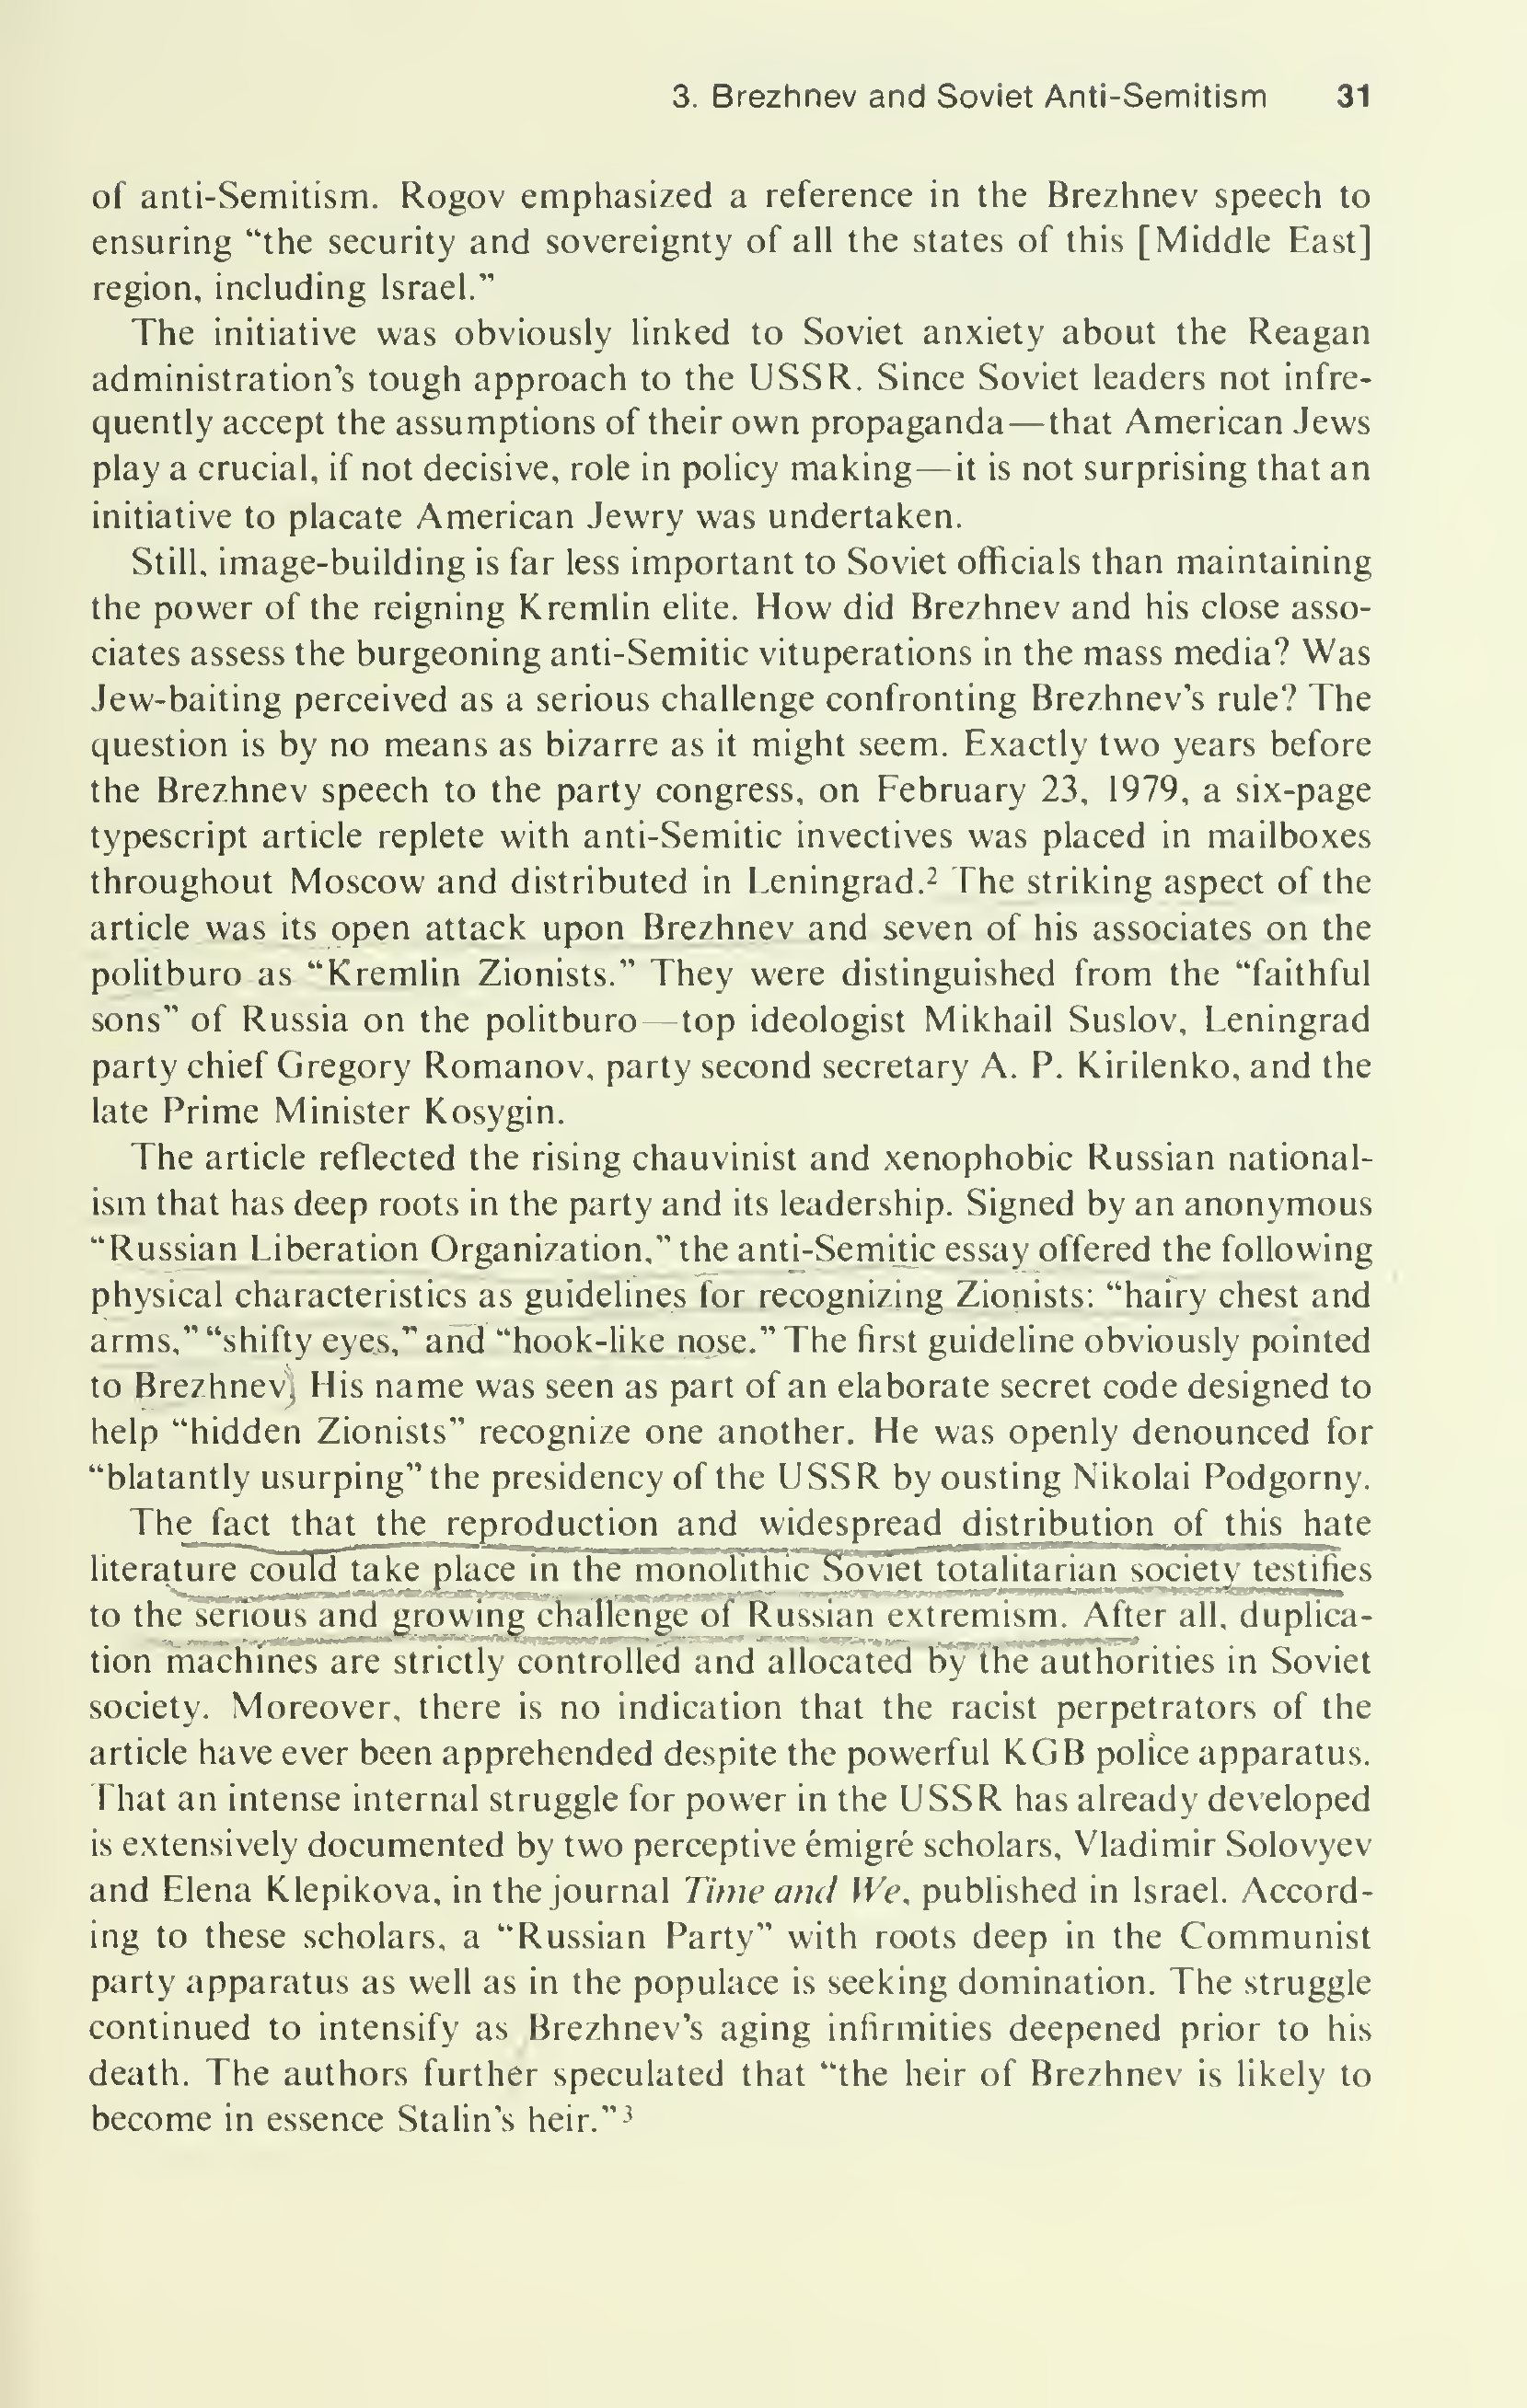 3. Brezhnev and Soviet Anti-Semitism 31
of anti-Semitism. Rogov emphasized a reference in the Brezhnev speech to
ensuring “the security and sovereignty of all the states of this [Middle East]
region, including Israel.”
The initiative was obviously linked to Soviet anxiety about the Reagan
administration’s tough approach to the USSR. Since Soviet leaders not infre-
quently accept the assumptions of their own propaganda—that American Jews
play a crucial, if not decisive, role in policy making—it is not surprising that an
initiative to placate American Jewry was undertaken.
Still, image-building is far less important to Soviet officials than maintaining
the power of the reigning Kremlin elite. How did Brezhnev and his close asso-
ciates assess the burgeoning anti-Semitic vituperations in the mass media? Was
Jew-baiting perceived as a serious challenge confronting Brezhnev’s rule? The
question is by no means as bizarre as it might seem. Exactly two years before
the Brezhnev speech to the party congress, on February 23, 1979, a six-page
typescript article replete with anti-Semitic invectives was placed in mailboxes
throughout Moscow and distributed in Leningrad.² The striking aspect of the
article was its open attack upon Brezhnev and seven of his associates on the
politburo as “Kremlin Zionists.” They were distinguished from the “faithful
sons” of Russia on the politburo—top ideologist Mikhail Suslov, Leningrad
party chief Gregory Romanov, party second secretary A. P. Kirilenko, and the
late Prime Minister Kosygin.
The article reflected the rising chauvinist and xenophobic Russian national-
ism that has deep roots in the party and its leadership. Signed by an anonymous
“Russian Liberation Organization,” the anti-Semitic essay offered the following
physical characteristics as guidelines for recognizing Zionists: “hairy chest and
arms,” “shifty eyes,” and “hook-like nose.” The first guideline obviously pointed
to Brezhnev. His name was seen as part of an elaborate secret code designed to
help “hidden Zionists” recognize one another. He was openly denounced for
“blatantly usurping” the presidency of the USSR by ousting Nikolai Podgorny.
The fact that the reproduction and widespread distribution of this hate
literature could take place in the monolithic Soviet totalitarian society testifies
to the serious and growing challenge of Russian extremism. After all, duplica-
tion machines are strictly controlled and allocated by the authorities in Soviet
society. Moreover, there is no indication that the racist perpetrators of the
article have ever been apprehended despite the powerful KGB police apparatus.
That an intense internal struggle for power in the USSR has already developed
is extensively documented by two perceptive émigré scholars, Vladimir Solovyev
and Elena Klepikova, in the journal Time and We, published in Israel. Accord-
ing to these scholars, a “Russian Party” with roots deep in the Communist
party apparatus as well as in the populace is seeking domination. The struggle
continued to intensify as Brezhnev’s aging infirmities deepened prior to his
death. The authors further speculated that “the heir of Brezhnev is likely to
become in essence Stalin’s heir.”³